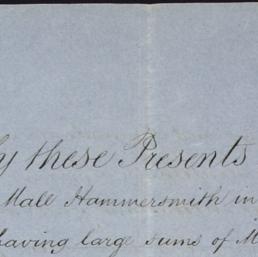 by these Presents
Mall Hammersmith in
having large sums of M